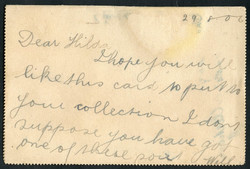 29.8.06
Dear Hilda
I hope you will
like this card to put in
your collection I dont
suppose you have got
one of these sort